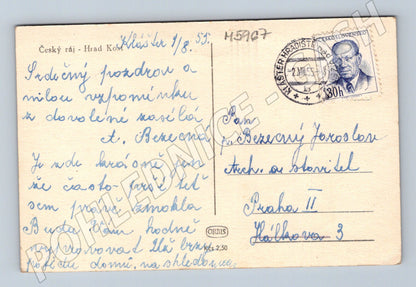 Český ráj - Hrad Kost
Klášter 1/8. 55.
H5967
Srdečný pozdrav a
milou vzpomínku
z dovolené zasílá
A. Bezecná
Je zde krásně jen
že často prší teď
sem právě zmokla
Budu Vám hodně
až
domů, na shledanou
ORBIS
Kčs 2,50
KLÁŠTER HRADIŠTĚ NAD
ČESKOSLOVENSKO
30h
Pan
Bezecný Jaroslav
Arch. a stavitel
Praha II
Hálkova 3
POHLEDNICE